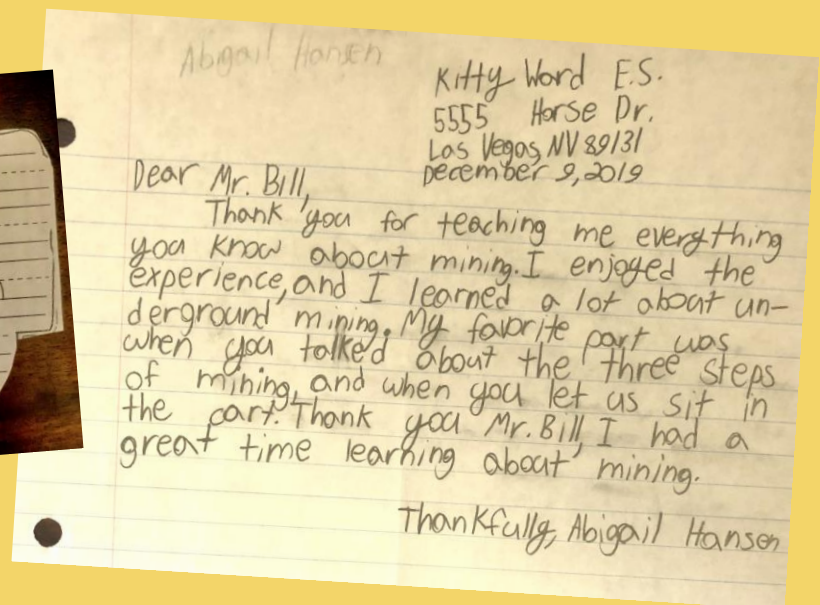 Abigail Hansen
Kitty Word E.S.
5555 Horse Dr.
Las Vegas, NV 89131
December 9, 2019
Dear Mr. Bill,
Thank you for teaching me everything
you know about mining. I enjoyed the
experience, and I learned a lot about un-
derground mining. My favorite part was
when you talked about the three steps
of mining, and when you let us sit in
the cart. Thank you Mr. Bill, I had a
great time learning about mining.
Thankfully, Abigail Hansen